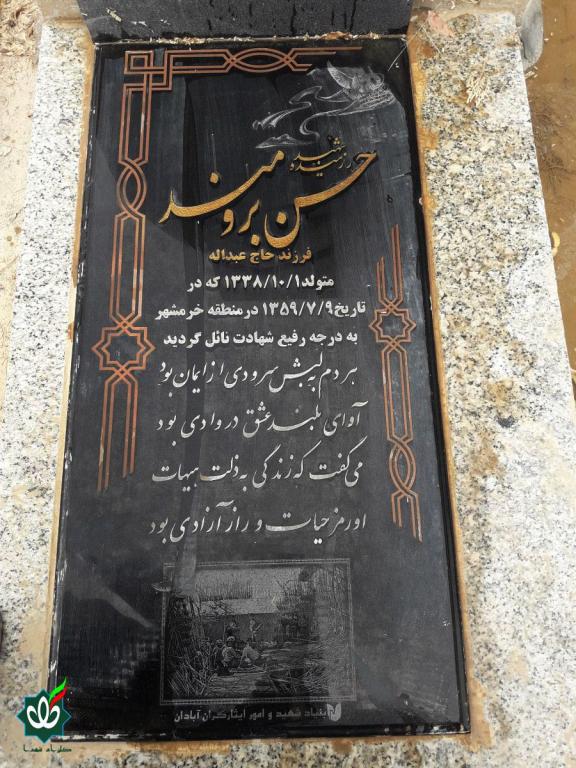 رزمنده شهید
حسن برومند
فرزند حاج عبداله
متولد ۱۳۳۸/۱۰/۱ که در
تاریخ ۱۳۵۹/۷/۹ در منطقه خرمشهر
به درجه رفیع شهادت نائل گردید
هر دم به لبش سرودی از ایمان بود
آوای بلند عشق در وادی بود
می گفت که زندگی به ذلت هیهات
او رمز حیات و راز آزادی بود
بنیاد شهید و امور ایثارگران آبادان